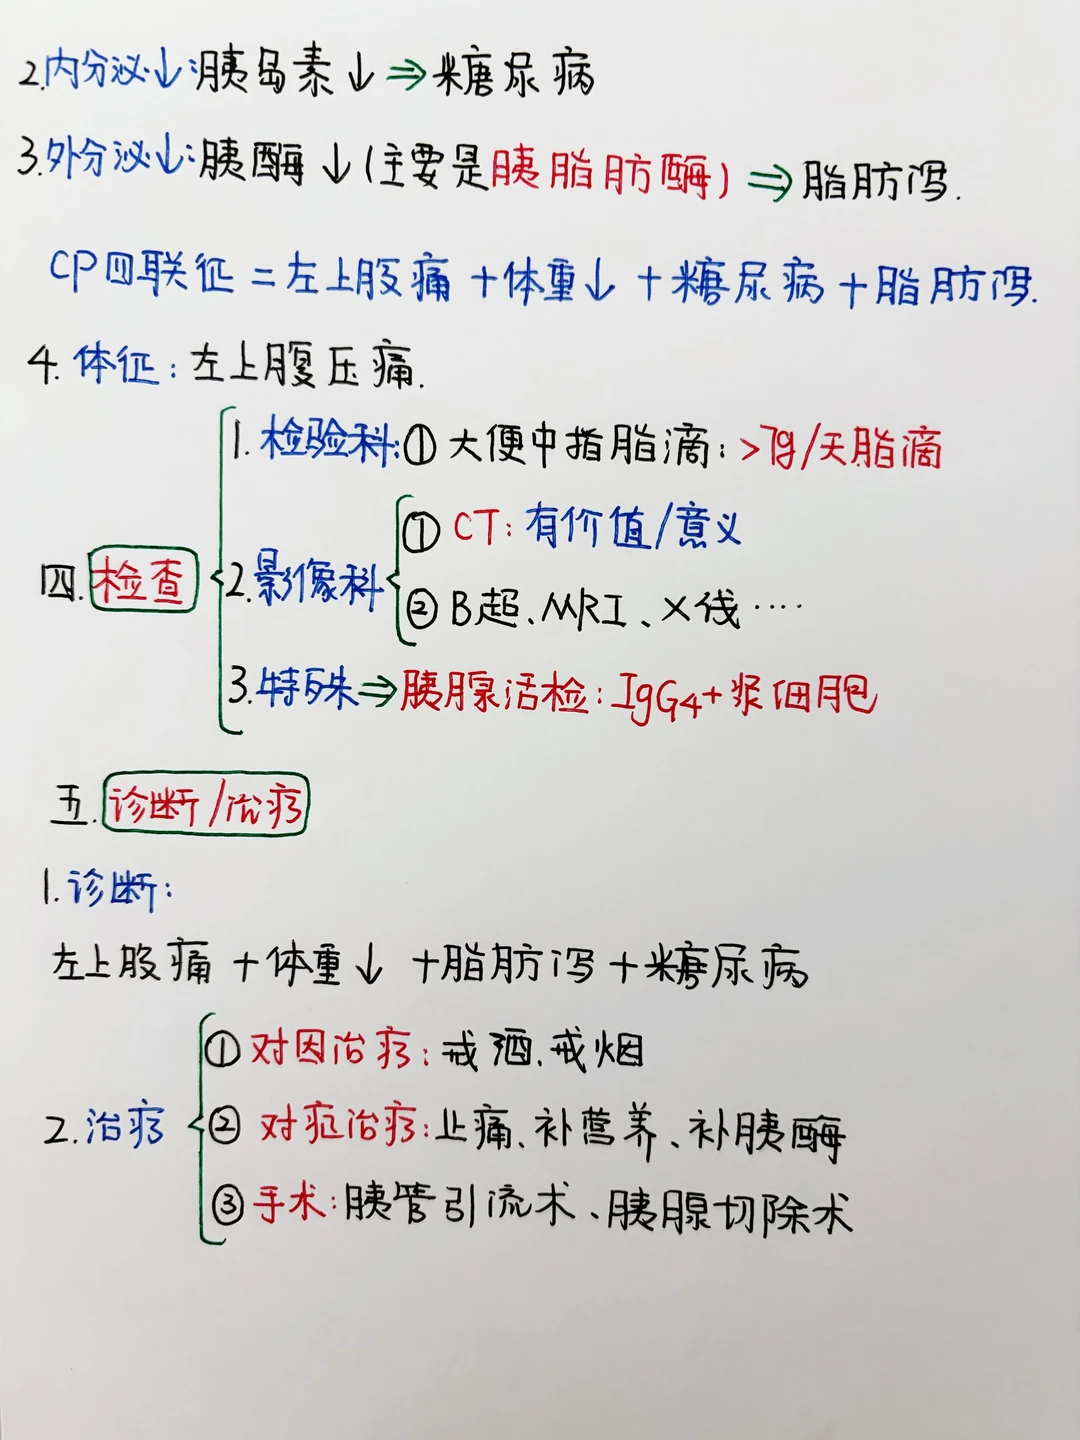 2.内分泌↓:胰岛素↓⇒糖尿病
3.外分泌↓:胰酶↓(主要是胰脂肪酶)⇒脂肪泻.
CP四联征=左上股痛+体重↓+糖尿病+脂肪泻.
4.体征:左上腹压痛.
四.检查
1.检验科:①大便中指脂滴:>7g/天脂滴
2.影像科
①CT:有价值/意义
②B超、MRI、X线····
3.特殊⇒胰腺活检:IgG4+浆细胞
五.诊断/治疗
1.诊断:
左上股痛+体重↓+脂肪泻+糖尿病
2.治疗
①对因治疗:戒酒、戒烟
②对症治疗:止痛、补营养、补胰酶
③手术:胰管引流术、胰腺切除术